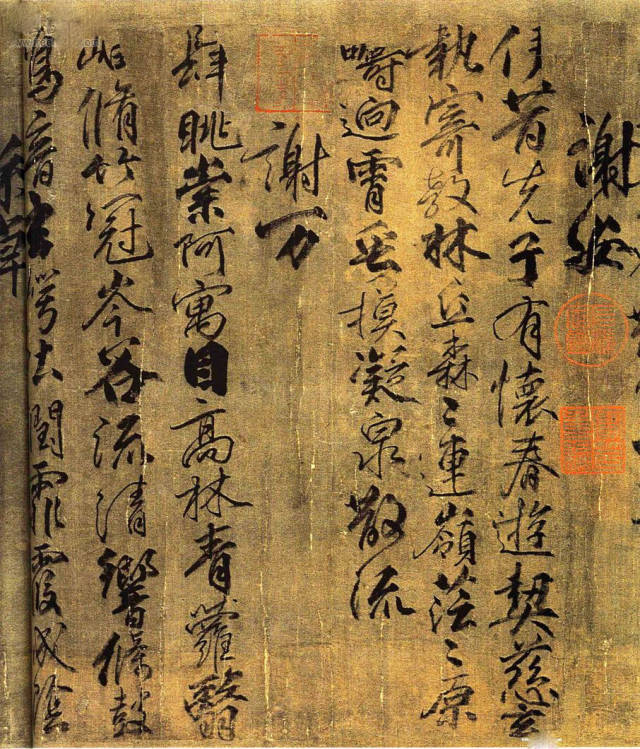 謝安
伊昔先子有懷春遊契慈言
執寄敖林丘森〻連嶺茫〻原
疇迥霄垂凝泉散流
謝万
肆眺崇阿寓目高林青蘿翳
岫脩竹冠岑谷流清響條鼓
鳴音玄崿吐潤霏霞成陰